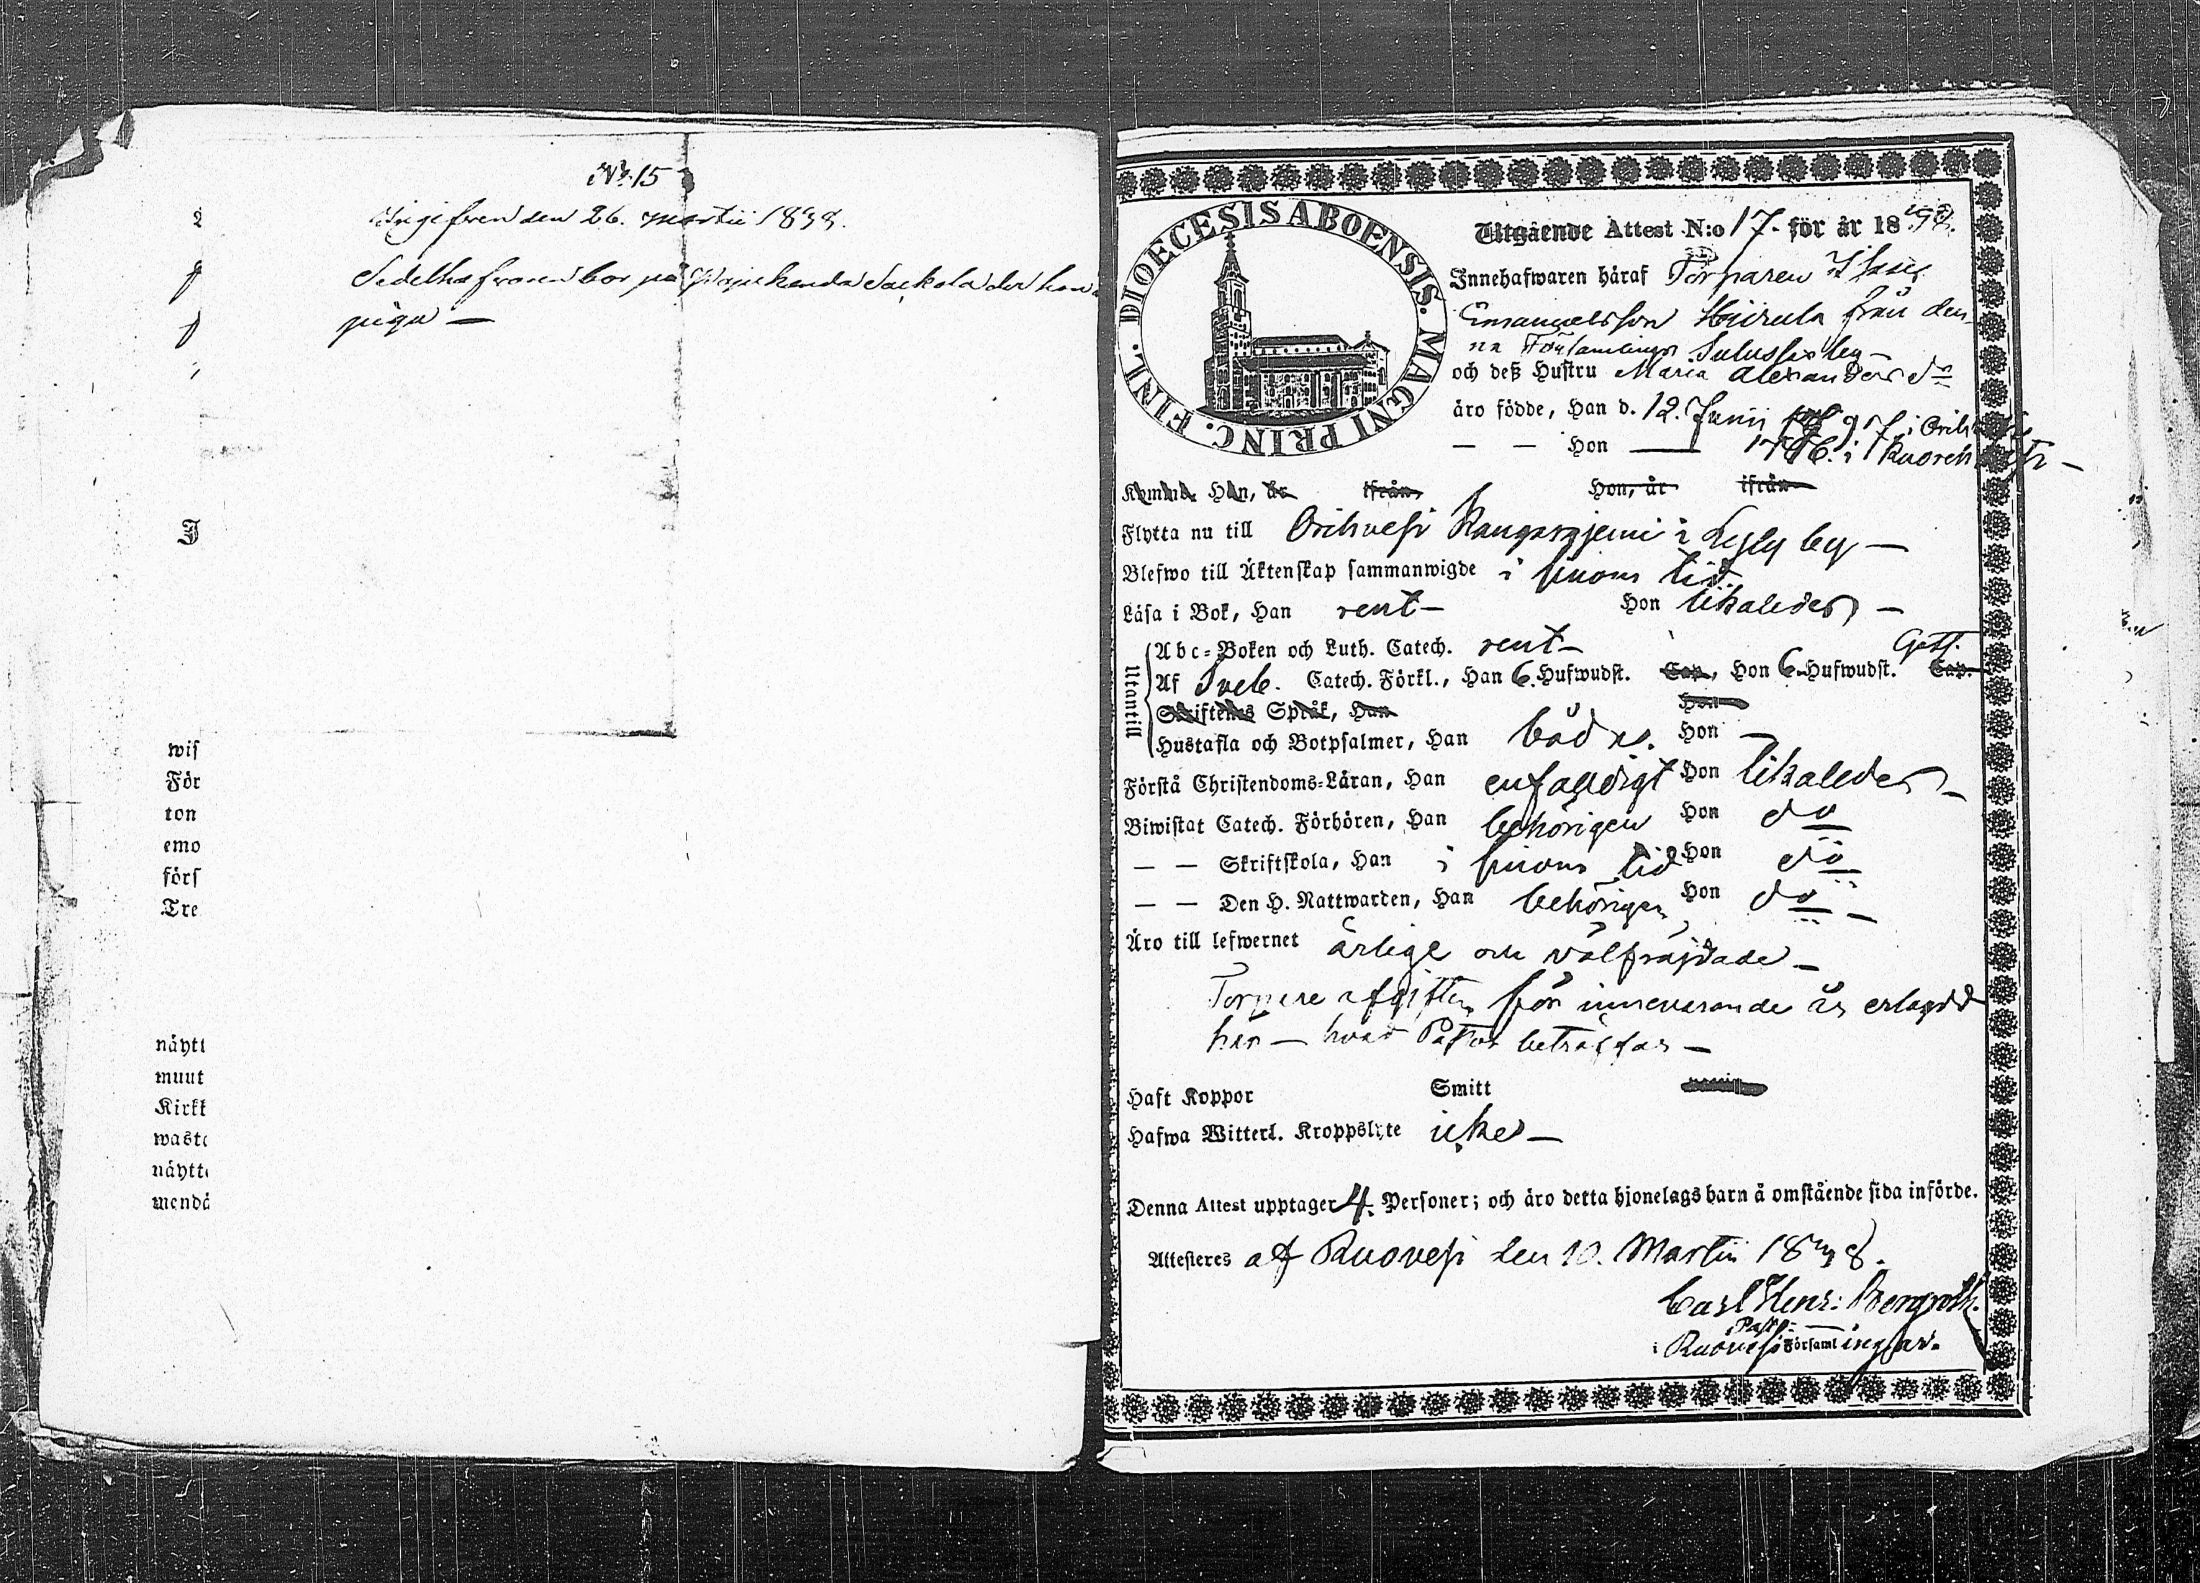 No 15
den 26. Martii 1838.
bor på Sackola der hon
piga —
J
wis
För
ton
emo
förs
Tre
näytt
muut
Kirkk
wasta
näytte
mendä
DIOECESIS ABOENSIS. MAGNI PRINC. FINL.
Utgående Attest N:o 17. för år 1838.
Innehafwaren häraf Torparen Isaac
Emanuelsson från den-
na Församlings by —
och deß Hustru Maria Alexandersdr
äro födde, Han d. 12. Junii i Orih
— — Hon — i Ruovesi —
Komne Han, år ifrån, Hon, år ifrån
Flytta nu till Orihvesi Kangasniemi i by —
Blefwo till Äktenskap sammanwigde i sinom tid
Läsa i Bok, Han rent — Hon likaledes —
Utantill
Abc-Boken och Luth. Catech. rent —
Af Sveb. Catech. Förkl., Han 6. Hufwudst. Cap., Hon 6 Hufwudst. Cap.
Skriftenes Språk, Han Hon
Hustafla och Botpsalmer, Han både. Hon —
Förstå Christendoms-Läran, Han enfaldigt Hon likaledes —
Biwistat Catech. Förhören, Han behörigen Hon do
— — Skriftskola, Han i sinom tid Hon do
— — Den H. Nattwarden, Han behörigen Hon do —
Äro till lefwernet ärlige och välfräjdade —
afgiften för innevarande år erlagd
här —
Haft Koppor Smitt
Hafwa Witterl. Kroppslyte icke —
Denna Attest upptager 4. Personer; och äro detta hjonelags barn å omstående sida införde.
Attesteres af Ruovesi den 10. Martii 1838.
Carl Henr: Bergroth.
Past:
i Ruovesi Församlingar.